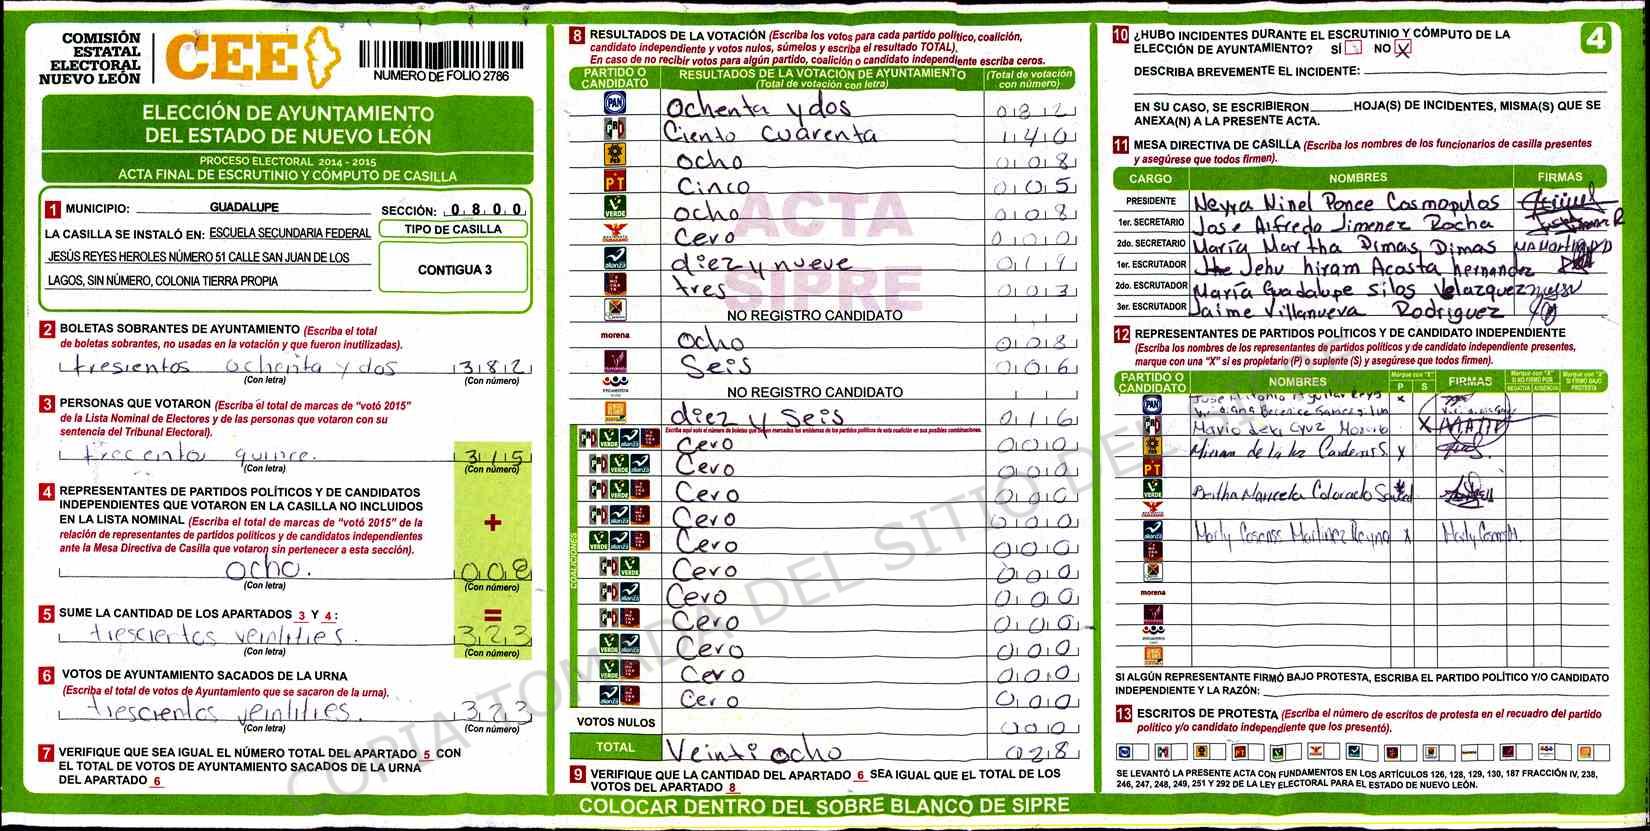 COMISIÓN
ESTATAL
ELECTORAL
NUEVO LEÓN
CEE
NUMERO DE FOLIO 2786
ELECCIÓN DE AYUNTAMIENTO
DEL ESTADO DE NUEVO LEÓN
PROCESO ELECTORAL 2014 - 2015
ACTA FINAL DE ESCRUTINIO Y CÓMPUTO DE CASILLA
1 MUNICIPIO: GUADALUPE SECCIÓN: 0 8 0 0
LA CASILLA SE INSTALÓ EN: ESCUELA SECUNDARIA FEDERAL
JESÚS REYES HEROLES NÚMERO 51 CALLE SAN JUAN DE LOS
LAGOS, SIN NÚMERO, COLONIA TIERRA PROPIA
TIPO DE CASILLA
CONTIGUA 3
2 BOLETAS SOBRANTES DE AYUNTAMIENTO (Escriba el total
de boletas sobrantes, no usadas en la votación y que fueron inutilizadas).
tresientos ochenta y dos 3 8 2
(Con letra) (Con número)
3 PERSONAS QUE VOTARON (Escriba el total de marcas de "votó 2015"
de la Lista Nominal de Electores y de las personas que votaron con su
sentencia del Tribunal Electoral).
quince. 3 1 5
(Con letra) (Con número)
4 REPRESENTANTES DE PARTIDOS POLÍTICOS Y DE CANDIDATOS
INDEPENDIENTES QUE VOTARON EN LA CASILLA NO INCLUIDOS
EN LA LISTA NOMINAL (Escriba el total de marcas de "votó 2015" de la
relación de representantes de partidos políticos y de candidatos independientes
ante la Mesa Directiva de Casilla que votaron sin pertenecer a esta sección).
+
ocho. 0 0 8
(Con letra) (Con número)
5 SUME LA CANTIDAD DE LOS APARTADOS 3 Y 4: =
3 2 3
(Con letra) (Con número)
6 VOTOS DE AYUNTAMIENTO SACADOS DE LA URNA
(Escriba el total de votos de Ayuntamiento que se sacaron de la urna).
3 2 3
(Con letra) (Con número)
7 VERIFIQUE QUE SEA IGUAL EL NÚMERO TOTAL DEL APARTADO 5 CON
EL TOTAL DE VOTOS DE AYUNTAMIENTO SACADOS DE LA URNA
DEL APARTADO 6
8 RESULTADOS DE LA VOTACIÓN (Escriba los votos para cada partido político, coalición,
candidato independiente y votos nulos, súmelos y escriba el resultado TOTAL).
En caso de no recibir votos para algún partido, coalición o candidato independiente escriba ceros.
PARTIDO O CANDIDATO RESULTADOS DE LA VOTACIÓN DE AYUNTAMIENTO (Total de votación con letra) (Total de votación con número)
PAN Ochenta y dos 0 8 2
Ciento cuarenta 1 4 0
ocho 0 0 8
PT Cinco 0 0 5
VERDE ocho 0 0 8
Cero 0 0 0
alianza diez y nueve 0 1 9
tres 0 0 3
NO REGISTRO CANDIDATO
morena ocho 0 0 8
Seis 0 0 6
NO REGISTRO CANDIDATO
diez y Seis 0 1 6
Escriba aquí solo el número de boletas que hayan marcados los emblemas de los partidos políticos de esta coalición en sus posibles combinaciones.
COALICIONES
Cero 0 0 0
Cero 0 0 0
Cero 0 0 0
Cero 0 0 0
Cero 0 0 0
Cero 0 0 0
Cero 0 0 0
Cero 0 0 0
Cero 0 0 0
Cero 0 0 0
Cero 0 0 0
VOTOS NULOS 0 0 0
TOTAL Veinti ocho 0 2 8
9 VERIFIQUE QUE LA CANTIDAD DEL APARTADO 6 SEA IGUAL QUE EL TOTAL DE LOS
VOTOS DEL APARTADO 8
ACTA
SIPRE
COPIA TOMADA DEL SITIO DEL SIPRE
COLOCAR DENTRO DEL SOBRE BLANCO DE SIPRE
4
10 ¿HUBO INCIDENTES DURANTE EL ESCRUTINIO Y CÓMPUTO DE LA
ELECCIÓN DE AYUNTAMIENTO? SÍ NO X
DESCRIBA BREVEMENTE EL INCIDENTE:
EN SU CASO, SE ESCRIBIERON HOJA(S) DE INCIDENTES, MISMA(S) QUE SE
ANEXA(N) A LA PRESENTE ACTA.
11 MESA DIRECTIVA DE CASILLA (Escriba los nombres de los funcionarios de casilla presentes
y asegúrese que todos firmen).
CARGO NOMBRES FIRMAS
PRESIDENTE Neyra Ninel Ponce Cosmopulos
1er. SECRETARIO Jose Alfredo Jimenez Rocha
2do. SECRETARIO María Martha Dimas Dimas
1er. ESCRUTADOR Jehu hiram Acosta hernandez
2do. ESCRUTADOR María Guadalupe Silos Velazquez
3er. ESCRUTADOR Jaime Villanueva Rodriguez
12 REPRESENTANTES DE PARTIDOS POLÍTICOS Y DE CANDIDATO INDEPENDIENTE
(Escriba los nombres de los representantes de partidos políticos y de candidato independiente presentes,
marque con una "X" si es propietario (P) o suplente (S) y asegúrese que todos firmen).
PARTIDO O CANDIDATO NOMBRES Marque con "X" P S FIRMAS Marque con "X" SI NO FIRMÓ POR NEGATIVA AUSENCIA Marque con "X" SI FIRMÓ BAJO PROTESTA
PAN x
Mario X
Miriam de la luz Cardenas S. x
PT
VERDE Bertha Maricela Colorado
alianza Martinez Reyna x
morena
SI ALGÚN REPRESENTANTE FIRMÓ BAJO PROTESTA, ESCRIBA EL PARTIDO POLÍTICO Y/O CANDIDATO
INDEPENDIENTE Y LA RAZÓN:
13 ESCRITOS DE PROTESTA (Escriba el número de escritos de protesta en el recuadro del partido
político y/o candidato independiente que los presentó).
SE LEVANTÓ LA PRESENTE ACTA CON FUNDAMENTOS EN LOS ARTÍCULOS 126, 128, 129, 130, 187 FRACCIÓN IV, 238,
246, 247, 248, 249, 251 Y 292 DE LA LEY ELECTORAL PARA EL ESTADO DE NUEVO LEÓN.